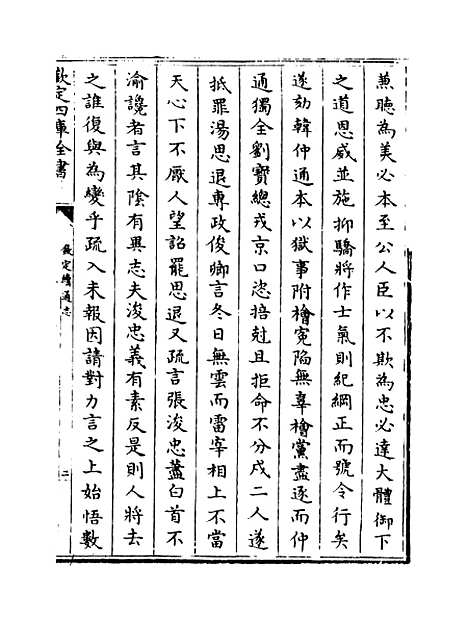 兼聽為美必本至公人臣以不欺為忠必達大體御下
之道恩威並施抑驕將作士氣則紀綱正而號令行矣
遂劾韓仲通本以獄事附檜冤陷無辜檜黨盡逐而仲
通獨全劉寶總戎京口恣掊尅且拒命不分戍二人遂
抵罪湯思退專政俊卿言冬日無雲而雷宰相上不當
天心下不厭人望詔罷思退又疏言張浚忠藎白首不
渝讒者言其陰有異志夫浚忠義有素反是則人將去
之誰復與為變乎疏入未報因請對力言之上始悟數
欽定四庫全書
欽定續通志
二